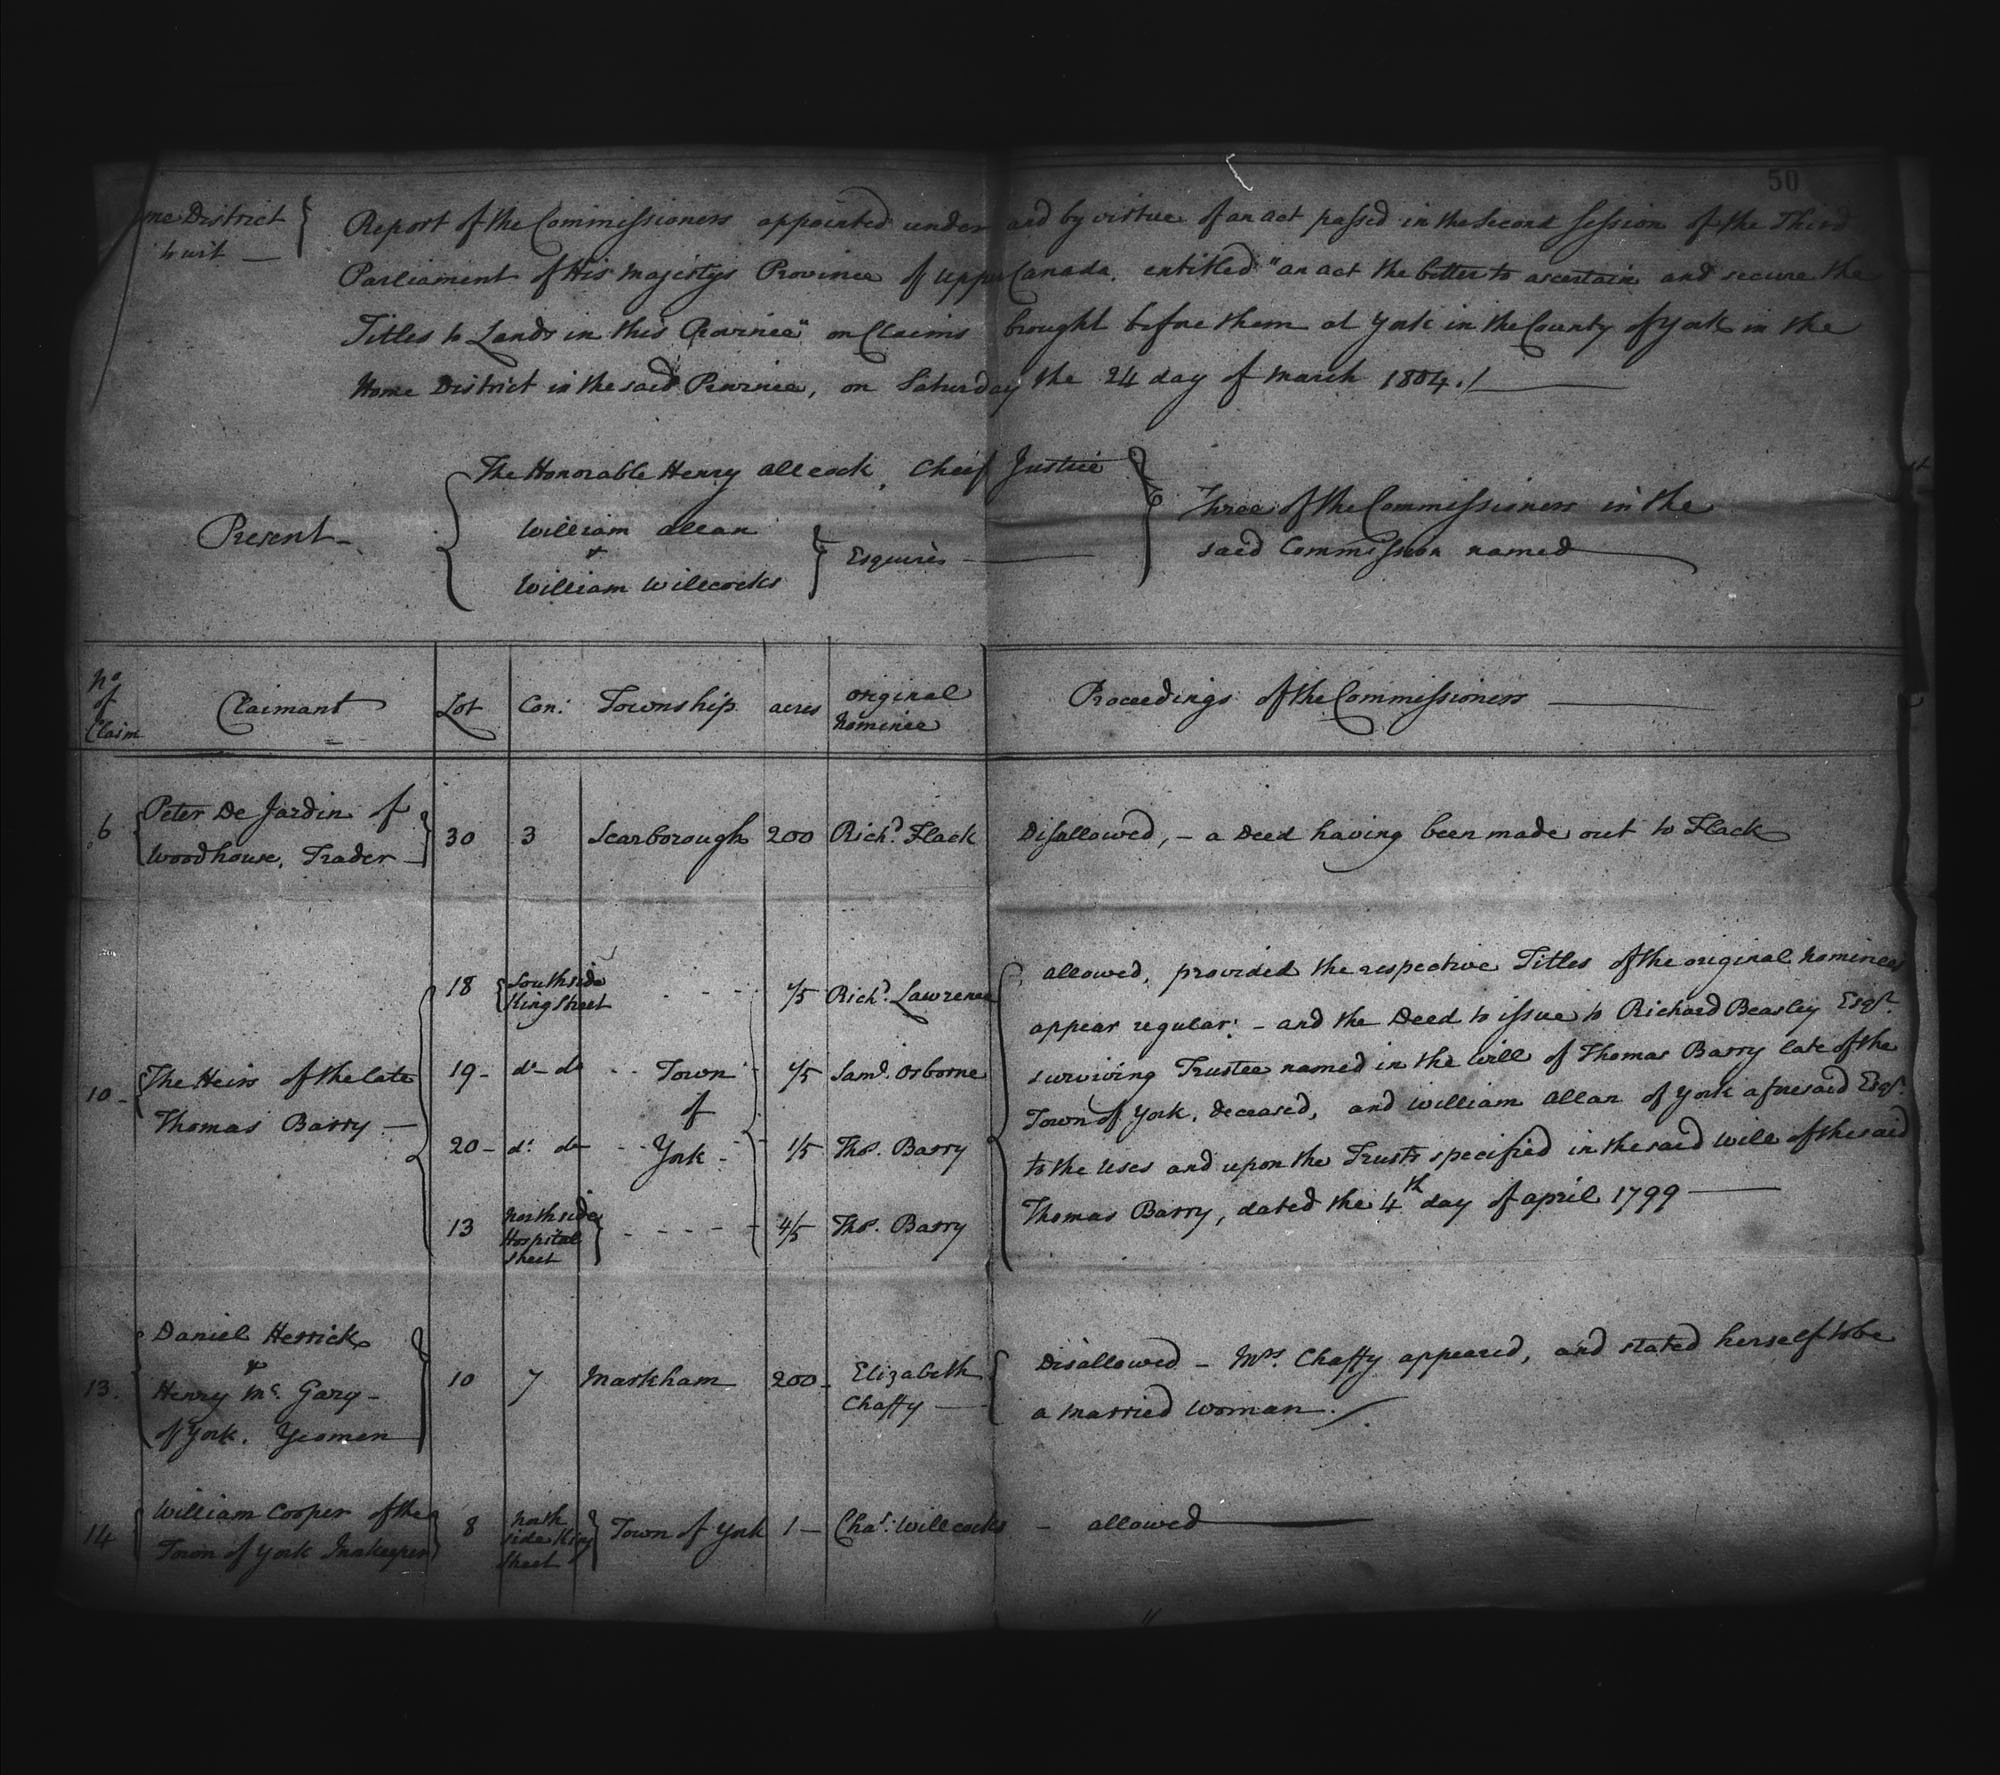 50
me District
to wit —
Report of the Commissioners appointed under and by virtue of an act passed in the Second Session of the Third
Parliament of His Majestys Province of Upper Canada, entitled "an act the better to ascertain and secure the
Titles to Lands in this Province" on Claims brought before them at York in the County of York in the
Home District in the said Province, on Saturday the 24 day of March 1804./
Present —
The Honorable Henry Allcock, Cheif Justice
William Allan
&
William Willcocks
Esquires —
Three of the Commissioners in the
said Commission named
No of Claim Claimant Lot Con: Township acres original nominee Proceedings of the Commissioners
6 Peter De Jardin of
Woodhouse, Trader — 30 3 Scarborough 200 Richd. Flack Disallowed, — a Deed having been made out to Flack
10 — The Heirs of the late
Thomas Barry —
18 South side
King Street 1/5 Richd. Lawrence
19 — do do Town 1/5 Saml. Osborne
of
20 — do do York 1/5 Thos. Barry
13 North side
Hospital
Street 4/5 Thos. Barry
allowed, provided the respective Titles of the original nominees
appear regular: — and the Deed to issue to Richard Beasley Esqr.
surviving Trustee named in the will of Thomas Barry late of the
Town of York, deceased, and William Allan of York aforesaid Esqr.
to the uses and upon the Trusts specified in the said will of the said
Thomas Barry, dated the 4th day of april 1799 —
13. Daniel Herrick
&
Henry Mc. Gary —
of York, Yeomen
10 7 Markham 200 — Elizabeth
Chaffy —
Disallowed — Mrs. Chaffy appeared, and stated herself to be
a married woman.
14 William Cooper of the
Town of York Innkeeper
8 North
side King
Street Town of York 1 — Chas. Willcocks — allowed